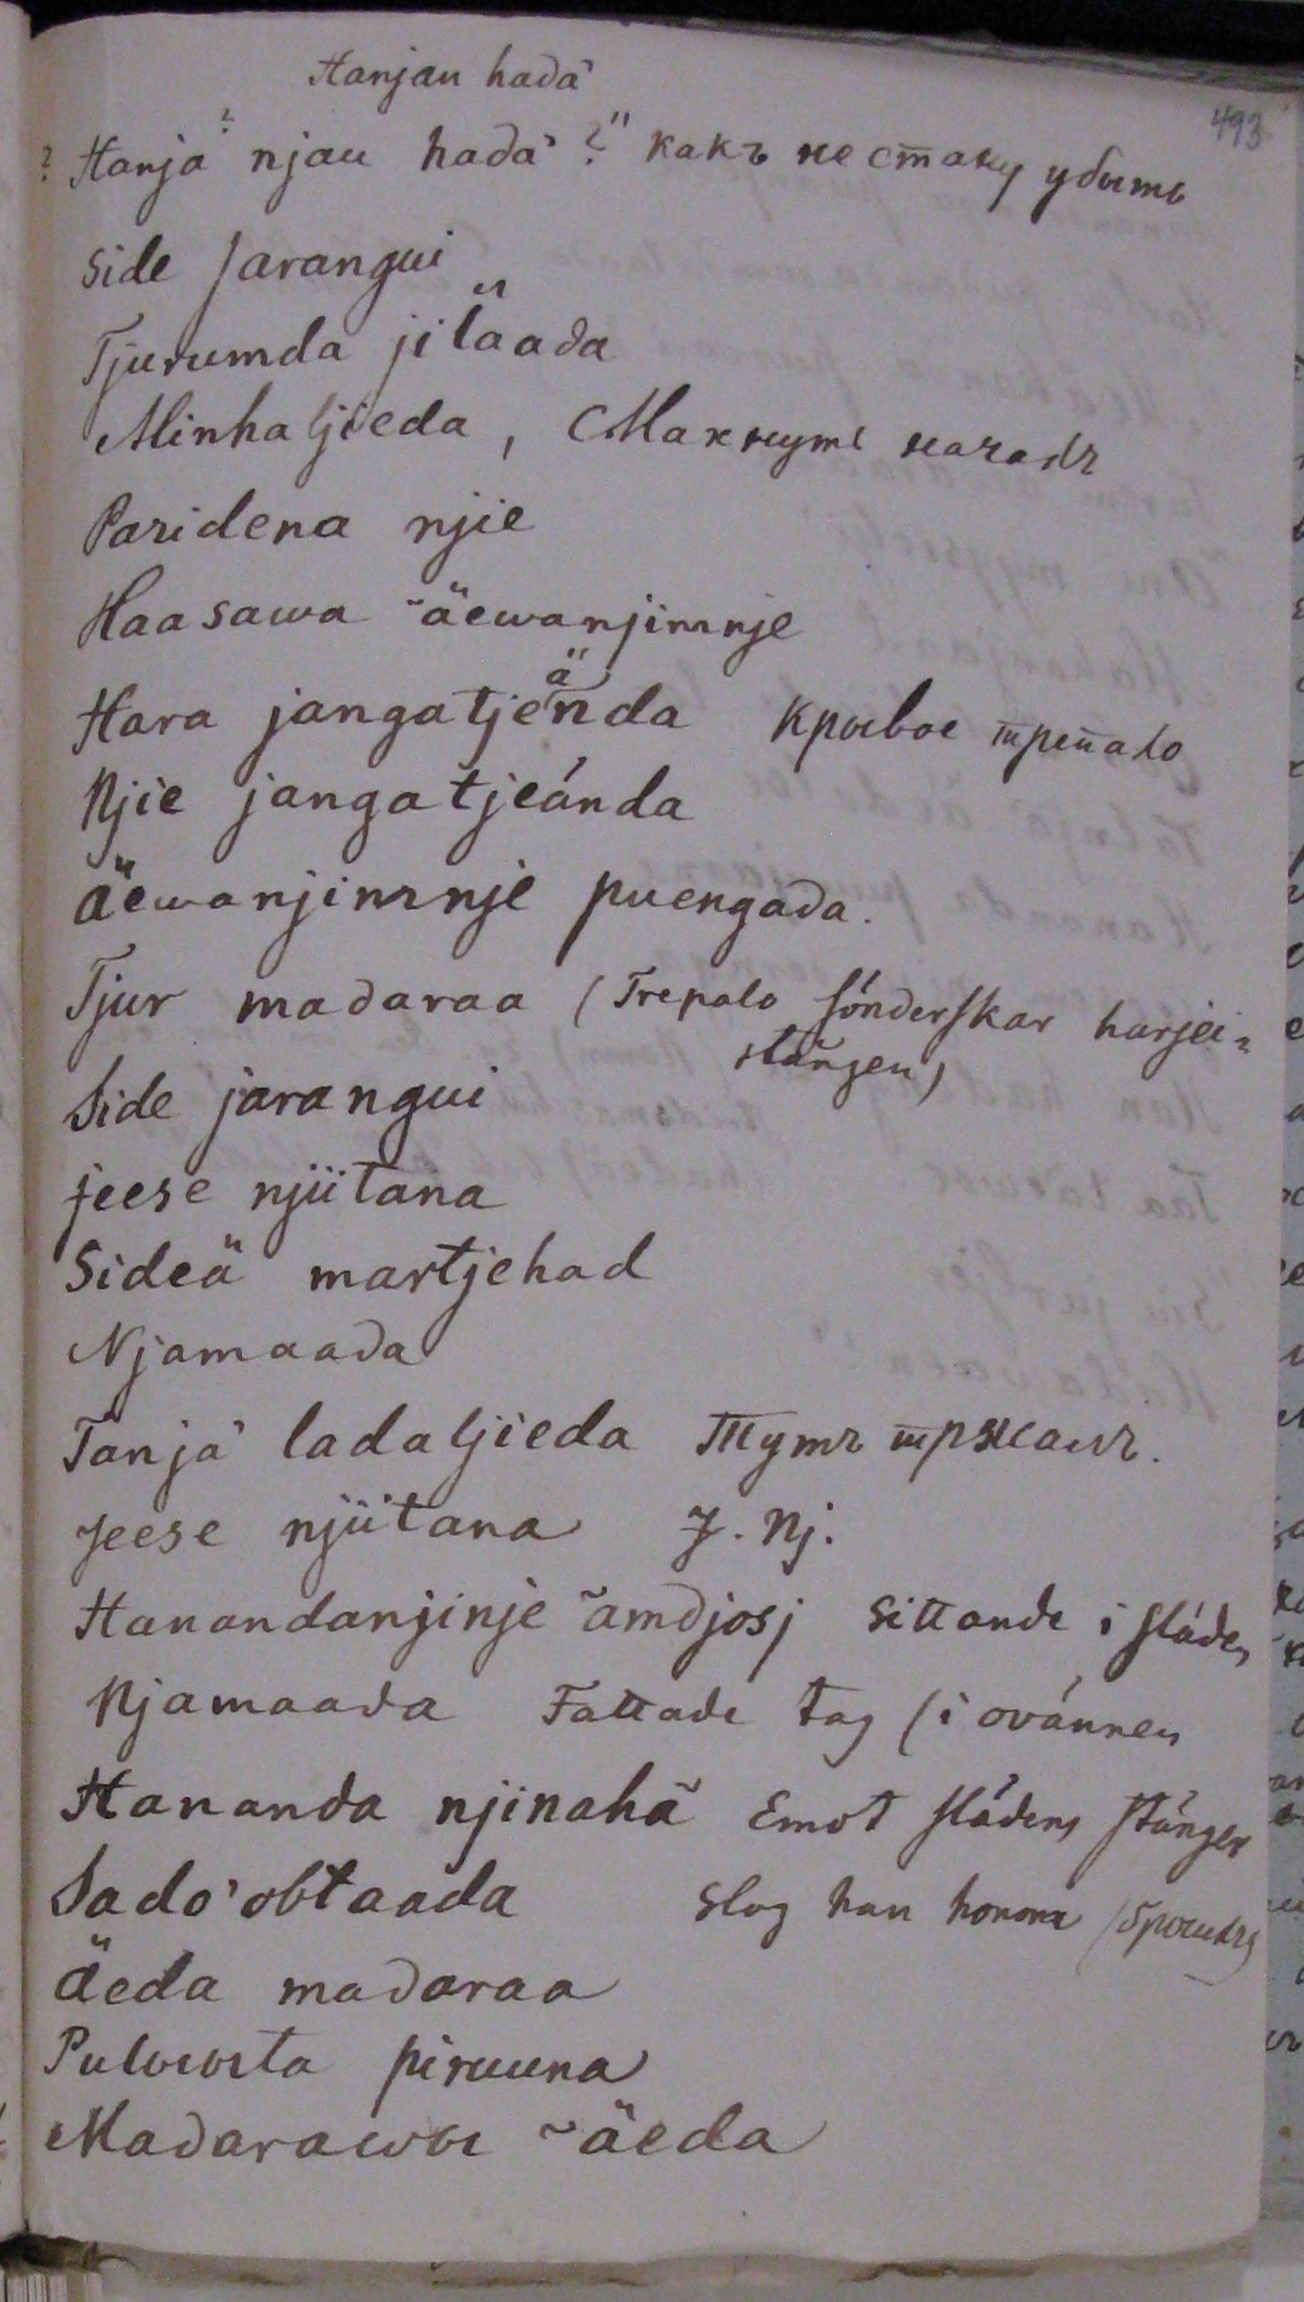 Hanjau hada'
493
? Hanja" njau hada' ?" какъ не стану убить
Side Jarangui
Tjurumda jiläada
Minhaljieda, (Махнутъ назадъ
Paridena njie
Haasawa ~äewanjimnje
Hara jangatjenda кривое трепало
ä
Njie jangatjeánda
äewanjimnje puengada.
Tjur madaraa (Trepalo sónderskar harjei=
stången)
Side jarangui
jeese njiitana
Sideä martjehad
Njamaada
Tanja' ladaljieda Тутъ тржалъ.
Jeese njiitana J. Nj.
Hanandanjinje ~amdjosj Sittande i släden
Njamaada Fattade tag (i ovännen
Hananda njinahã Emot slädens stänger
Sado'obtaada Slog han honom
äeda madaraa
piruuna
~äeda